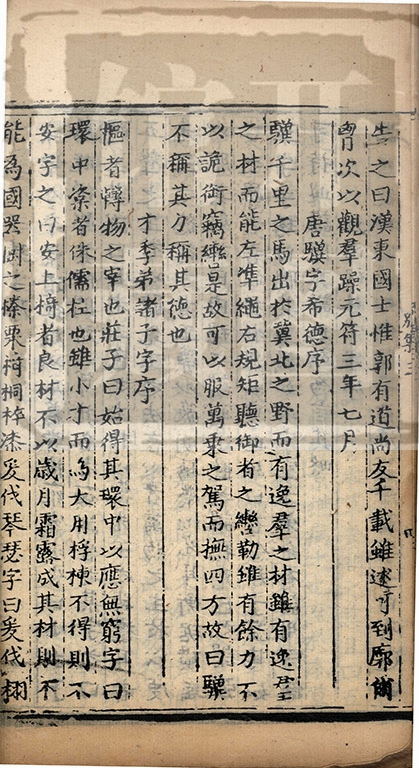 生之曰漢東國士惟郭有道尚友千載雖逑可到廓爾
胷次以觀羣躁元符三年七月
唐驥字希德序
驥千里之馬出於冀北之野而有逸羣之材雖有逸羣
之材而能左準繩右規矩聽御者之轡勒雖有餘力不
以詭銜竊轡是故可以服萬乗之駕而撫四方故曰驥
不稱其力稱其德也
才季弟諸子字序
樞者轉物之宰也莊子曰始得其環中以應無窮字曰
環中楶者侏儒柱也雖小才而為大用桴棟不得則不
安字之曰安上椅者良材不以歲月霜露成其材則不
能為國器樹之榛栗椅桐梓漆爰伐琴瑟字曰爰伐栩
別集三